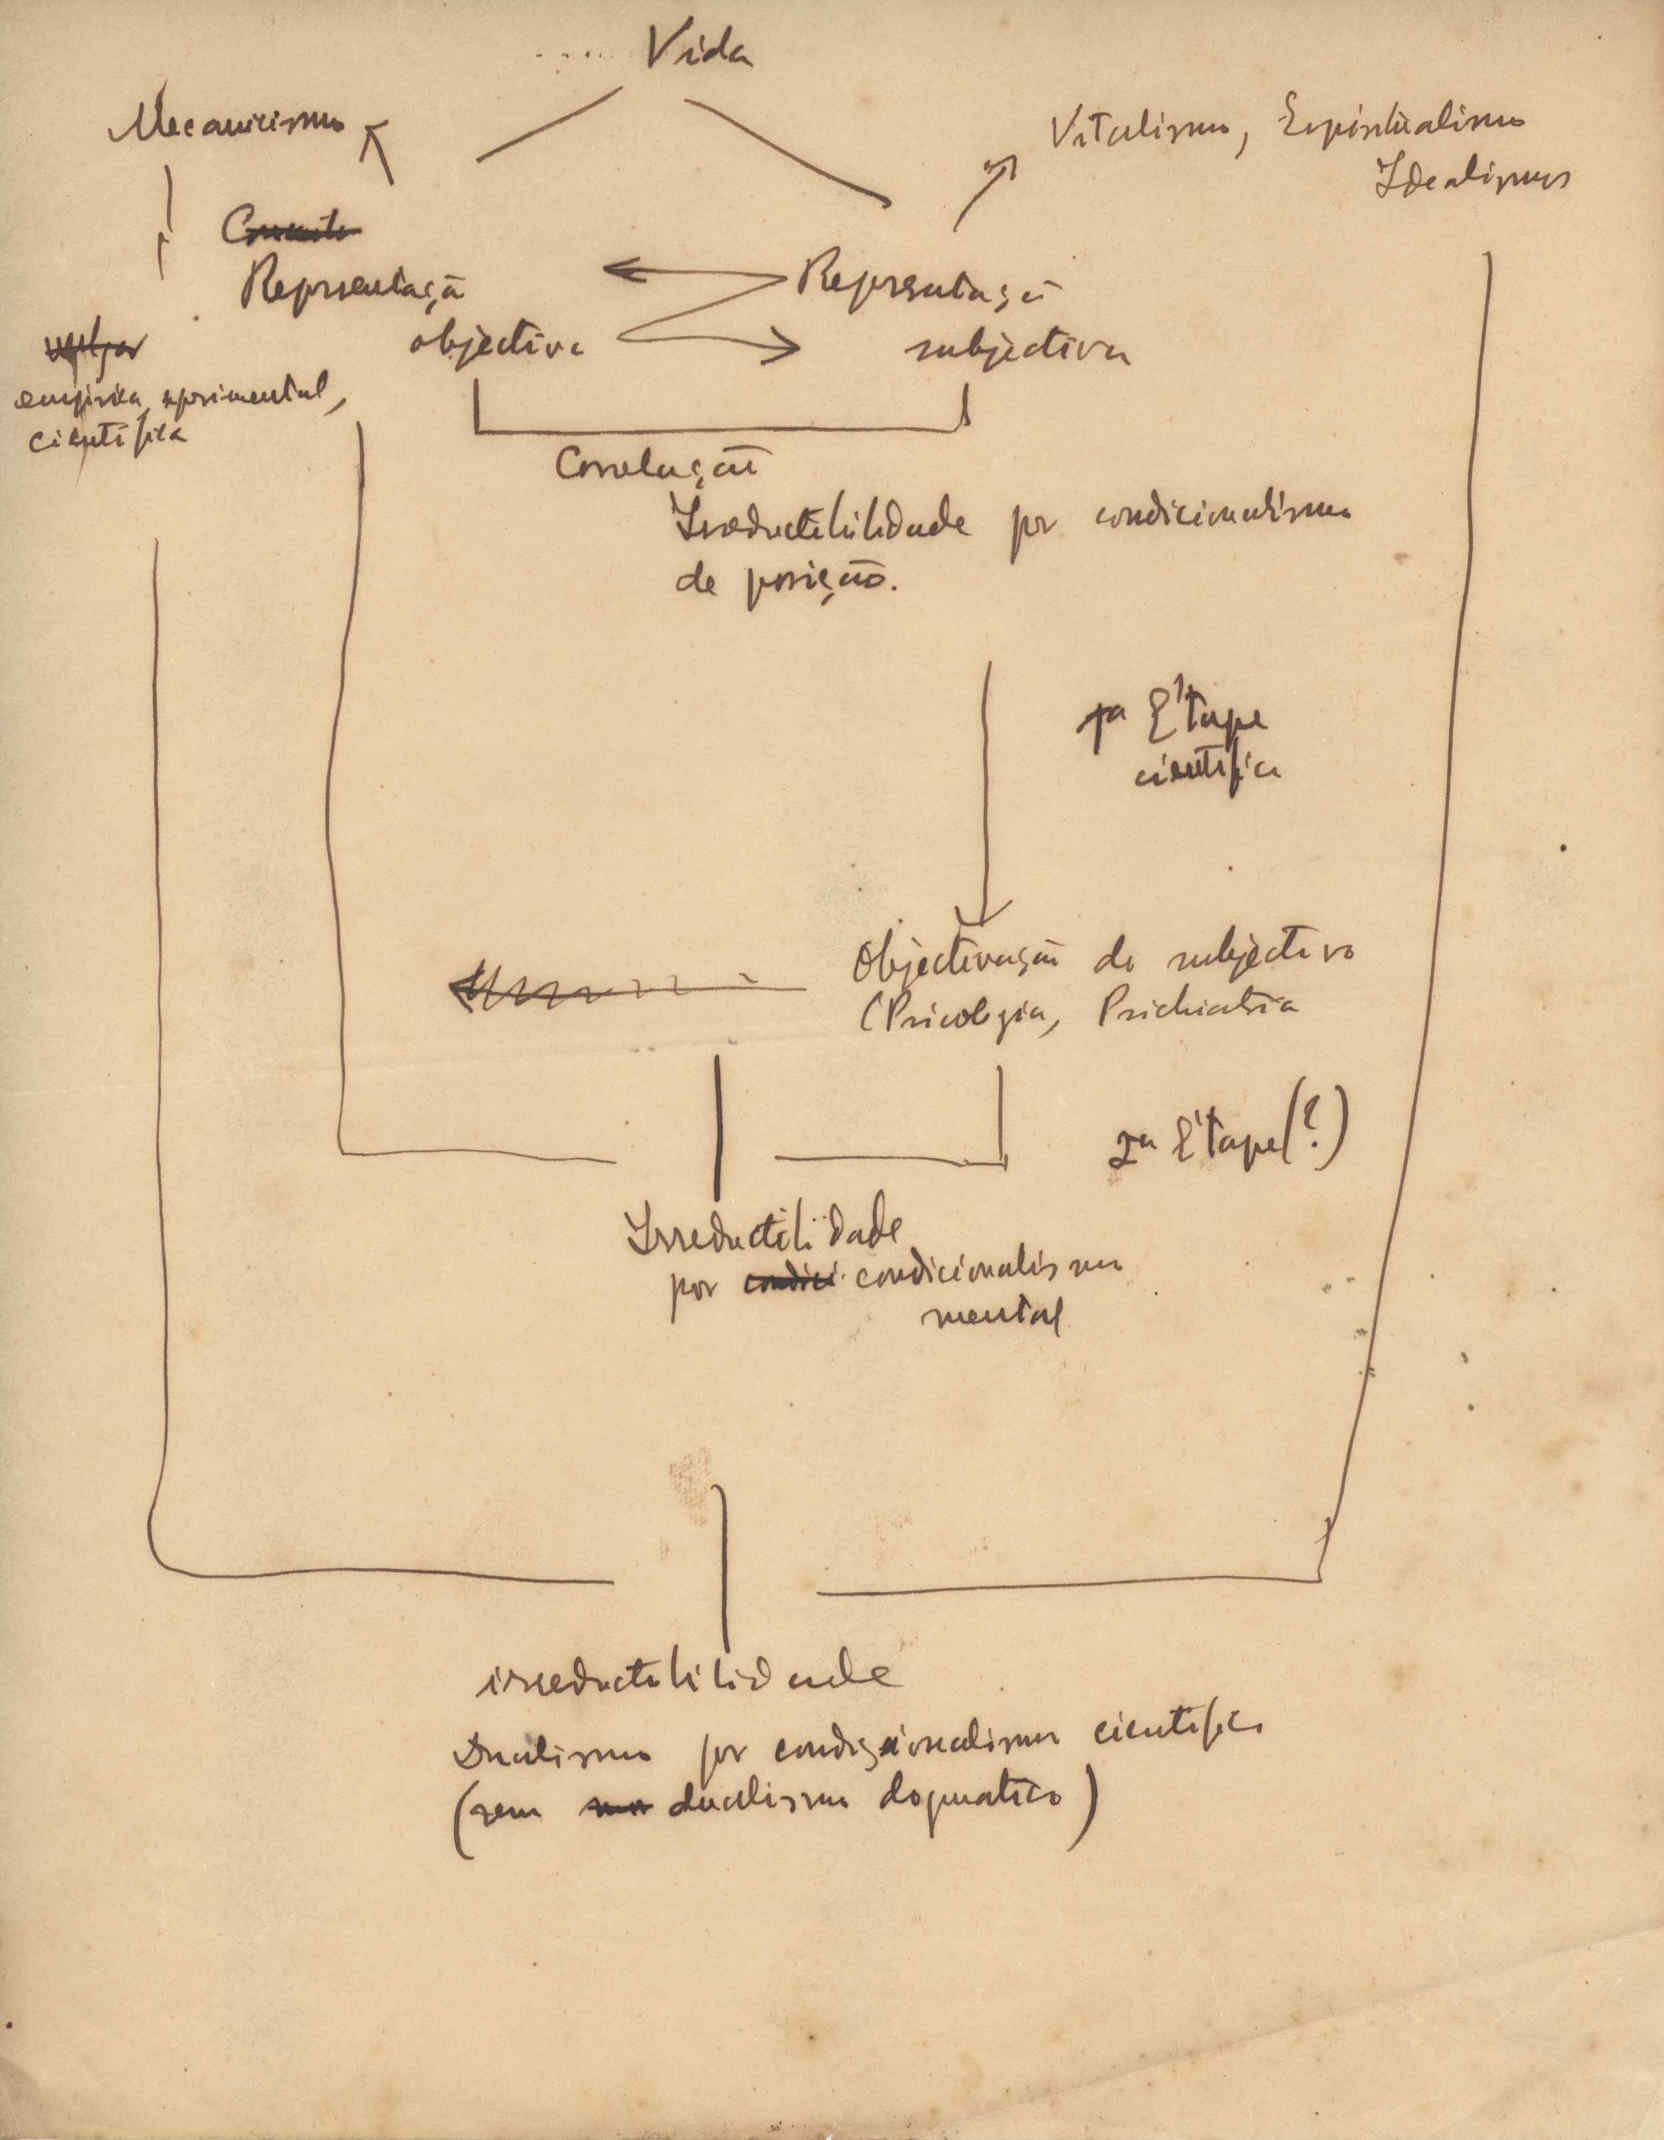 .... Vida
Mecanicismo
Vitalismo, Espiritualismo
Idealismos
Representação
objectiva
Representação
subjectiva
empirica, exprimental,
cientifica
Correlação
Irreductibilidade por condicionalismo
de posição.
1a Étape
cientifica
Objectivação do subjectivo
(Psicologia, Psichiatria
2a Étape (?)
Irreductibilidade
por condici condicionalismo
mental
irreductibilidade
Dualismo por condicionalismo cientifico
(sem dualismo dogmatico)